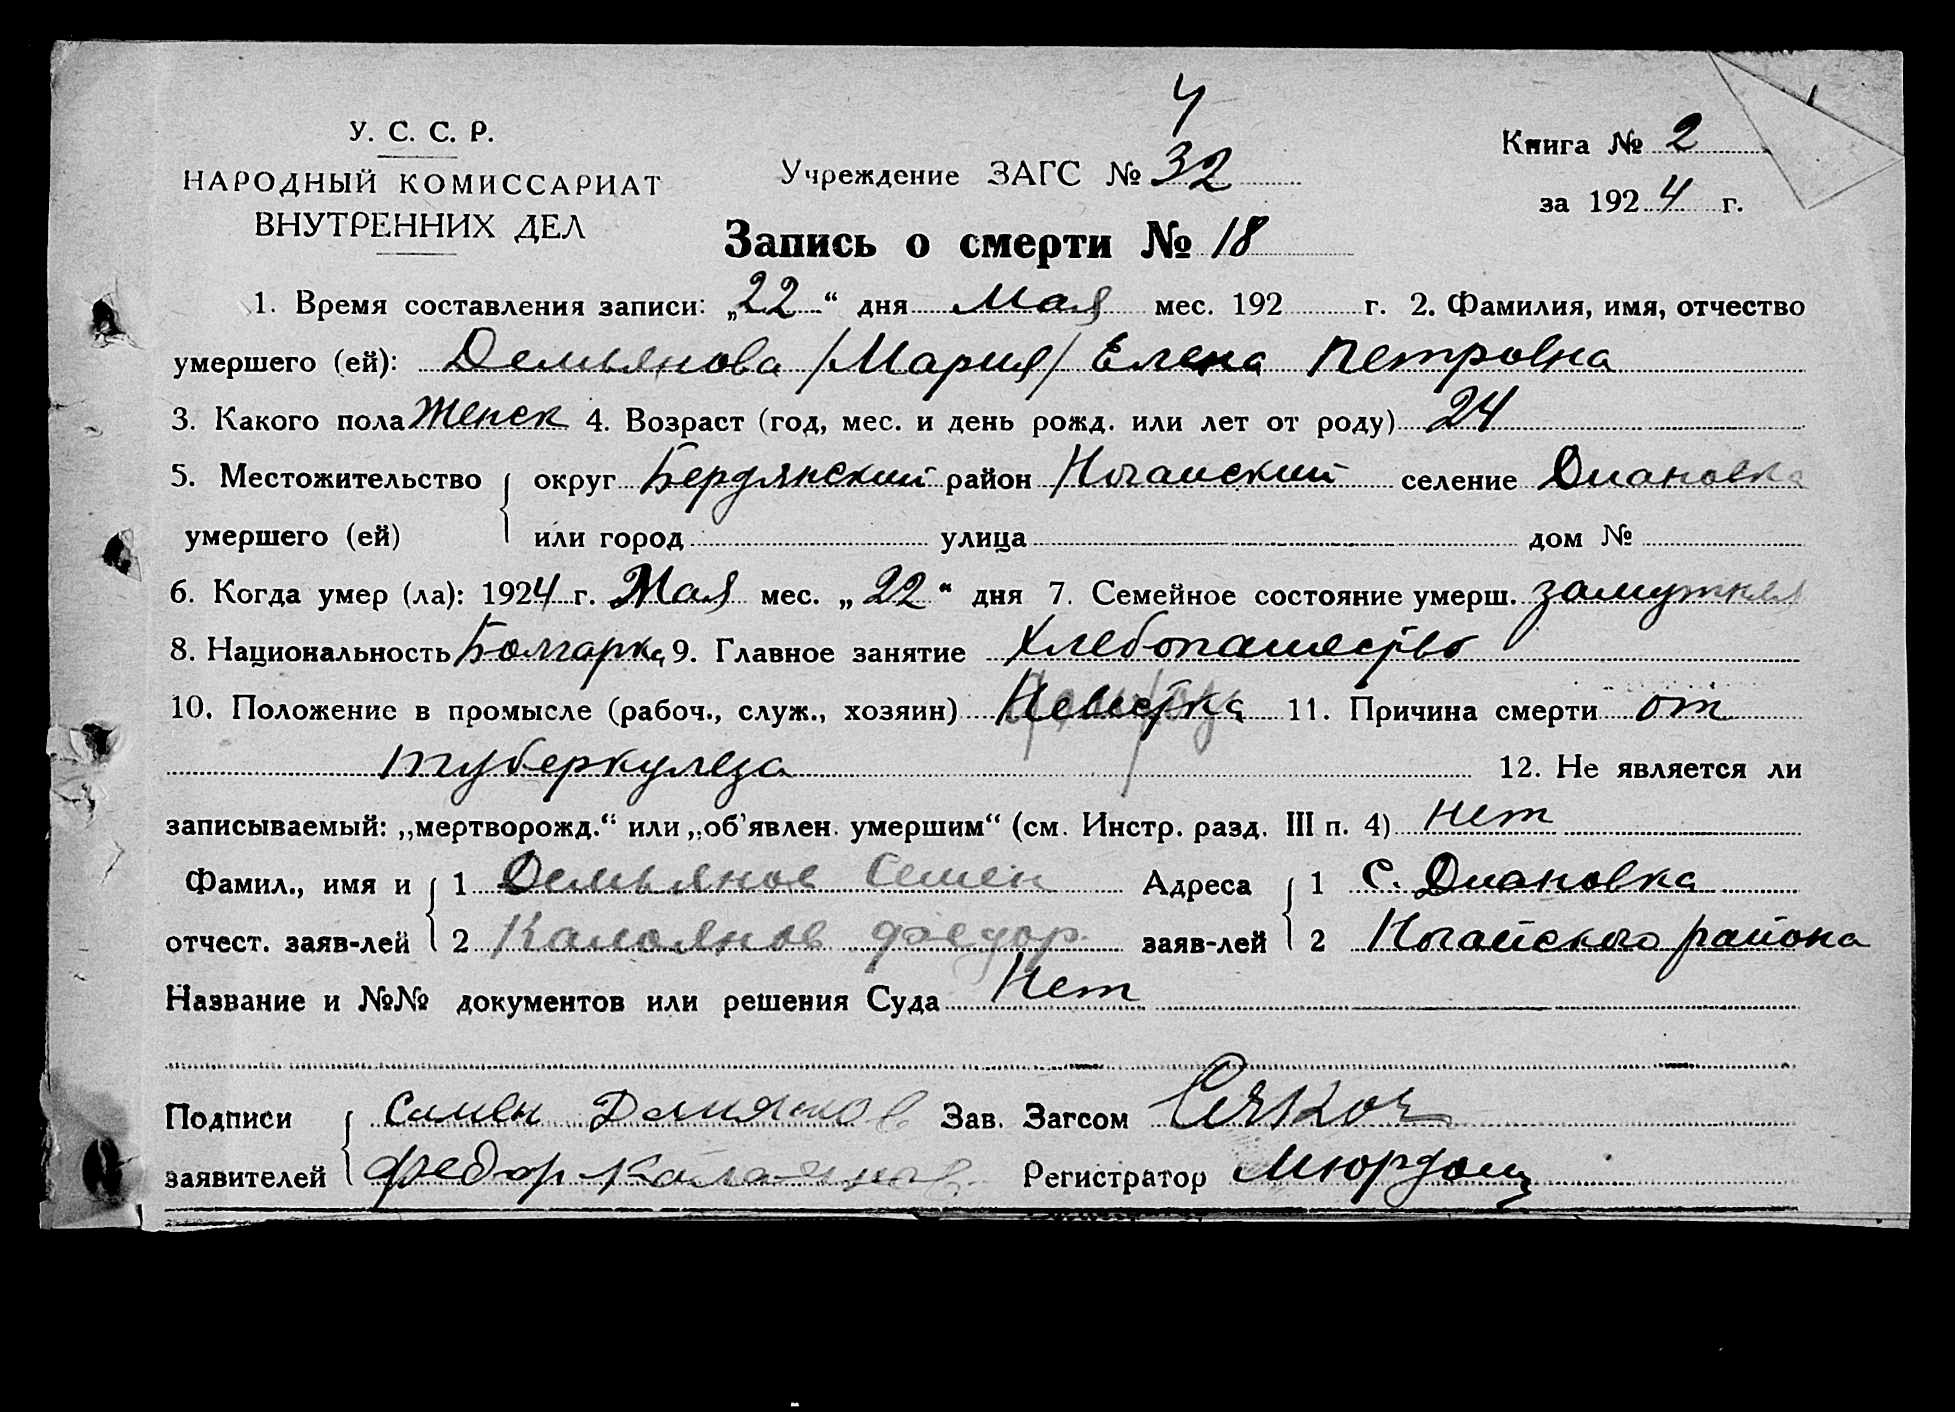 4
У. С. С. Р.
НАРОДНЫЙ КОМИССАРИАТ
ВНУТРЕННИХ ДЕЛ
Учреждение ЗАГС № 32
Книга № 2
за 1924 г.
Запись о смерти № 18
1. Время составления записи: „22“ дня Мая мес. 192 г. 2. Фамилия, имя, отчество
умершего (ей): Демьянова /Мария/ Елена Петровна
3. Какого пола Женск 4. Возраст (год, мес. и день рожд. или лет от роду) 24
5. Местожительство округ Бердянский район Ногаиский селение Диановка
умершего (ей) или город улица дом №
6. Когда умер (ла): 1924 г. Мая мес. „22“ дня 7. Семейное состояние умерш. замужняя
8. Национальность Болгарка 9. Главное занятие Хлебопашество
10. Положение в промысле (рабоч., служ., хозяин) Невестка 11. Причина смерти от
туберкулеза 12. Не является ли
записываемый: „мертворожд.“ или „об’явлен. умершим“ (см. Инстр. разд. III п. 4) Нет
Фамил., имя и 1 Демьянов Семен Адреса 1 С. Диановка
отчест. заяв-лей 2 Калоянов Федор заяв-лей 2 Ногайского района
Название и №№ документов или решения Суда Нет
Подписи Семен Демянов Зав. Загсом
заявителей Федор Калоянов Регистратор